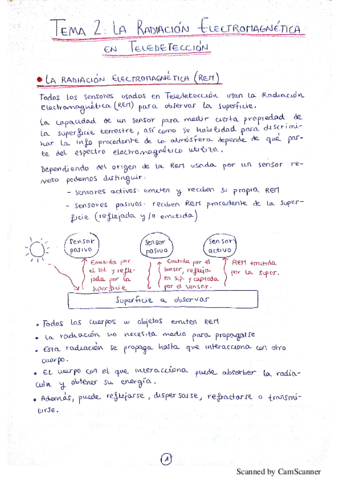 TEMA 2: LA RADIACIÓN ELECTROMAGNÉTICA
EN TELEDETECCIÓN
• LA RADIACIÓN ELECTROMAGNÉTICA (REM)
Todos los sensores usados en Teledetección usan la Radiación
Electromagnética (REM) para observar la superficie.
La capacidad de un sensor para medir cierta propiedad de
la superficie terrestre, así como su habilidad para discrimi-
nar la info procedente de la atmósfera depende de qué par-
te del espectro electromagnético utiliza.
Dependiendo del origen de la REM usada por un sensor re-
moto podemos distinguir:
- Sensores activos: emiten y reciben su propia REM
- Sensores pasivos: reciben REM procedente de la super-
ficie (reflejada y/o emitida)
Sensor pasivo
Sensor pasivo
Sensor activo
Emitida por
el sol y refle-
jada por la
superficie
Emitida por el
sensor, refleja
en S.P y captada
por el sensor.
REM emitida
por la super.
Superficie a observar
• Todos los cuerpos u objetos emiten REM
• La radiación no necesita medio para propagarse
• Esta radiación se propaga hasta que interacciona con otro
cuerpo.
• El cuerpo con el que interacciona puede absorber la radia-
ción y obtener su energía.
• Además, puede reflejarse, dispersarse, refractarse o transmi-
tirse.
1
Scanned by CamScanner